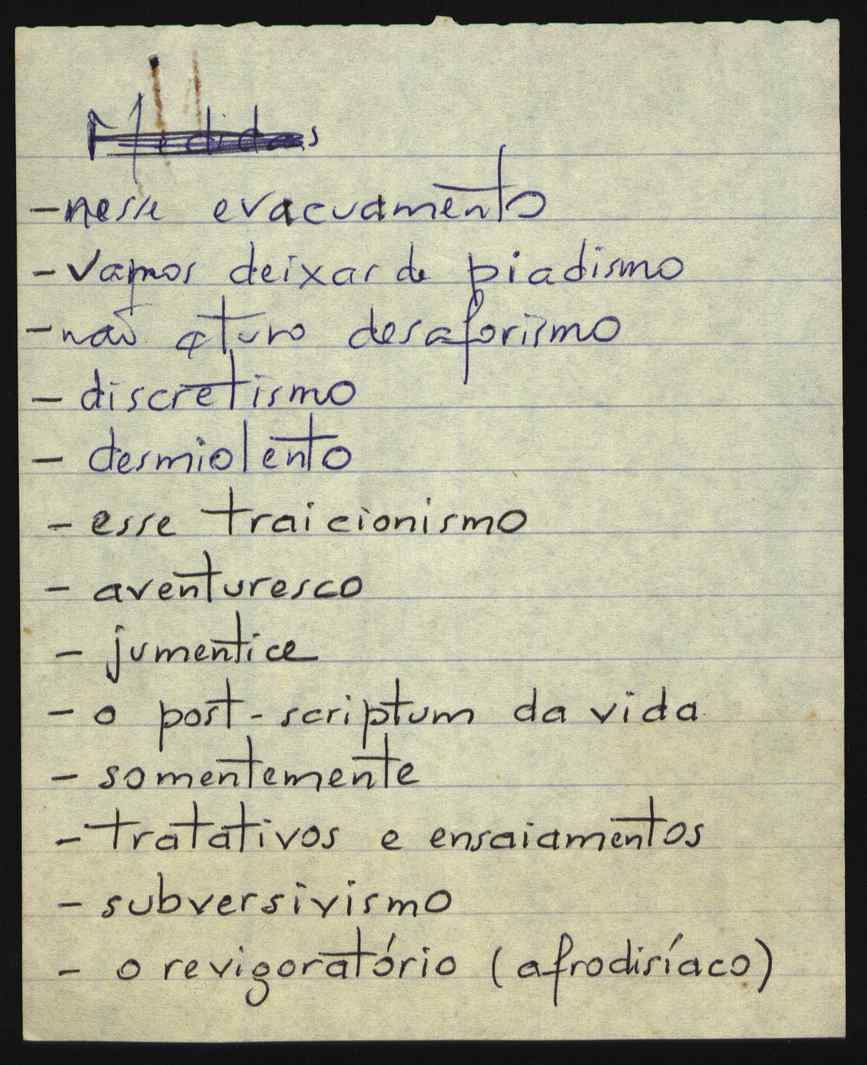 Medidas
- nesse evacuamento
- vamos deixar de piadismo
- não aturo desaforismo
- discretismo
- desmiolento
- esse traicionismo
- aventuresco
- jumentice
- o post-scriptum da vida
- somentemente
- tratativos e ensaiamentos
- subversivismo
- o revigoratório (afrodisíaco)